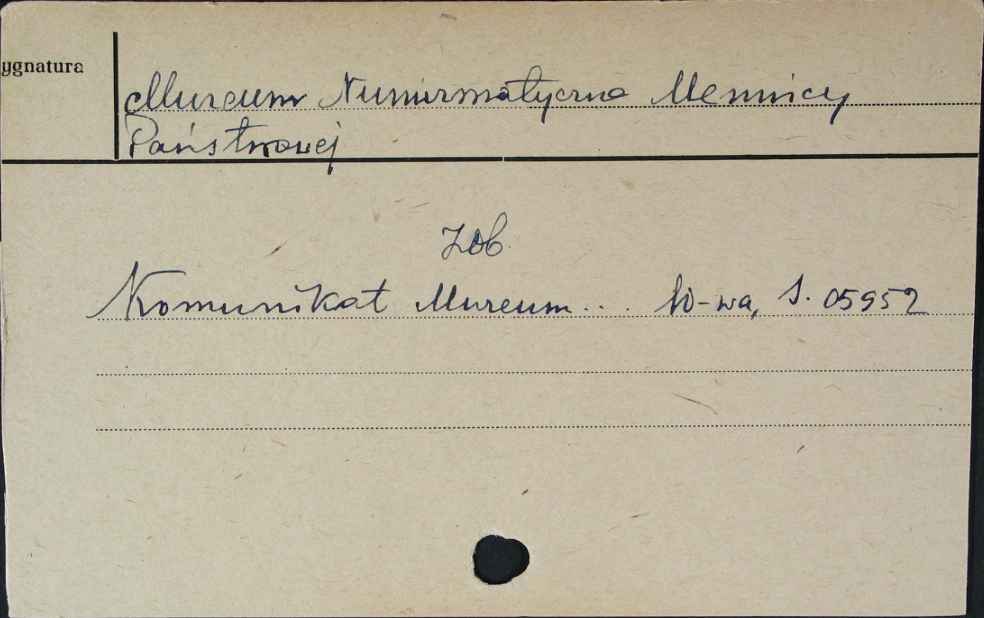 ygnatura
Muzeum Numizmatyczne Mennicy
Państwowej
Zob.
Komunikat Muzeum... W-wa, S. 05952